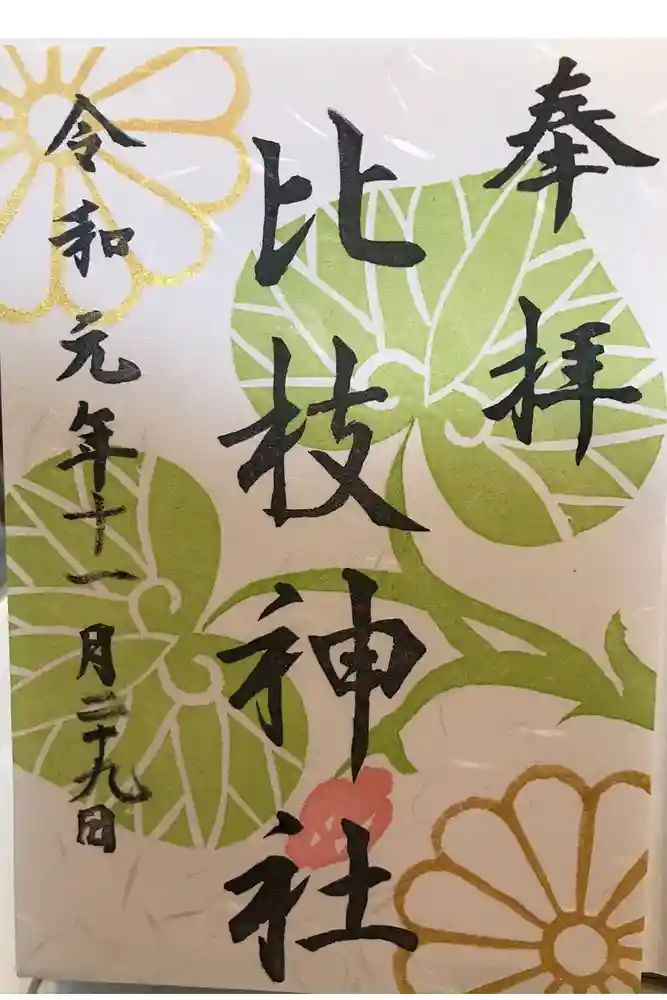 奉拝
比枝神社
令和元年十一月二十九日